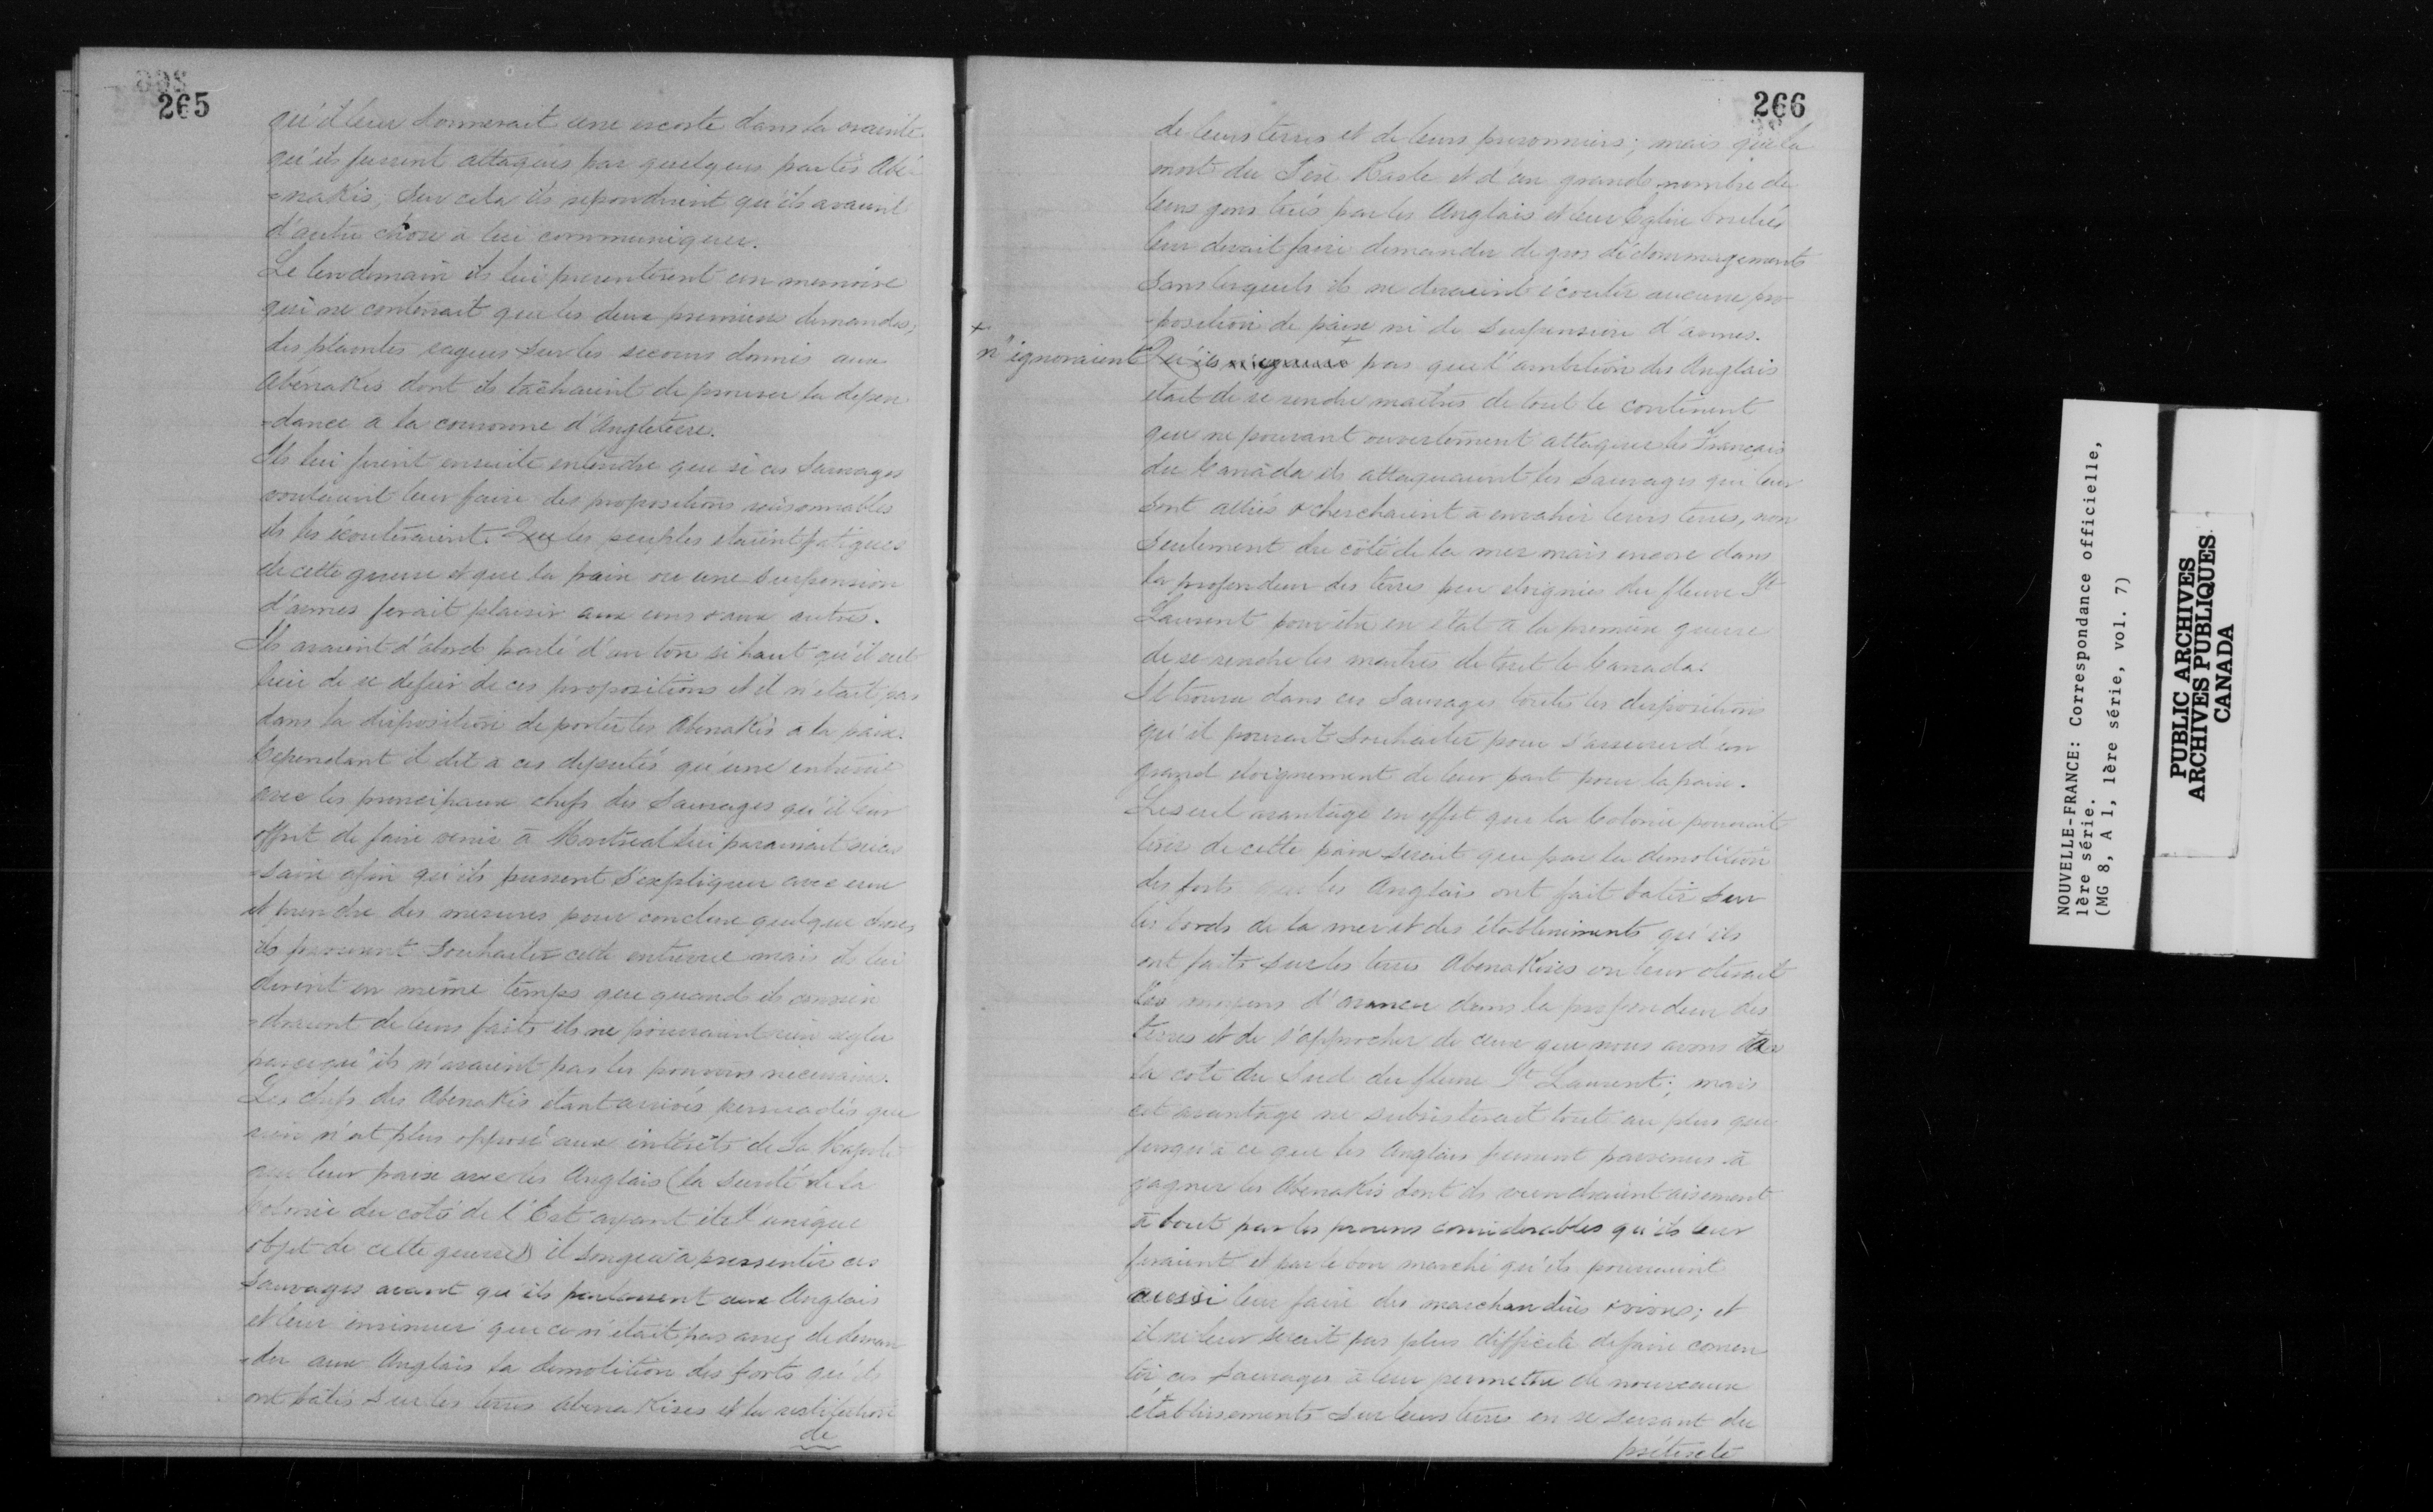 265
qu'il leur donnerait une escorte dans la crainte
qu'ils fussent attaqués par quelques partis Abé
-nakis; Sur cela ils repondirent qu'ils avaient
d'autre chose à lui communiquer.
Le lendemain ils lui presenterent un memoire
qui ne contenait que les deux premieres demandes;
des plaintes vagues sur les secours donnés aux
Abénakis dont ils tâchaient de prouver la depen
-dance à la couronne d'Angleterre.
Ils lui firent ensuite entendre que si ces Sauvages
voulaient leur faire des propositions raisonnables
ils les écouteraient. Que les peuples etaient fatigués
de cette guerre et que la paix ou une suspension
d'armes ferait plaisir aux uns & aux autres.
Ils avaient d'abord parlé d'un ton si haut qu'il eut
lieu de se defier de ces propositions et il n'était pas
dans la disposition de porter les Abenakis à la paix.
Cependant il dit à ces deputés qu'une entrevue
avec les principaux chefs des Sauvages qu'il leur
offrit de faire venir à Montreal lui paraissait néces
-saire afin qu'ils pussent s'expliquer avec eux
et prendre des mesures pour conclure quelque chose,
ils parurent souhaiter cette entrevue mais ils lui
dirent en même temps que quand ils convien
-draient de leurs faits ils ne pourraient rien regler
parcequ'ils n'avaient pas les pouvoirs necessaires.
Les chefs des Abenakis etant arrivés persuadés que
rien n'est plus opposé aux intérêts de Sa Majesté
que leur paix avec les Anglais (la sureté de la
Colonie du coté de l'Est ayant été l'unique
objet de cette guerre) il songea à pressentir ces
Sauvages avant qu'ils parlassent aux Anglais
et leur insinuer que ce n'était pas assez de deman
-der aux Anglais la demolition des forts qu'ils
ont bâtis sur les terres abenakises et la restitution
de
266
de leurs terres et de leurs prisonniers; mais que la
mort du Père Rasle et d'un grand nombre de
leurs gens tués par les Anglais et leur Eglise brulée
leur devait faire demander de gros dédommagements
sans lesquels ils ne devaient écouter aucune pro
-position de paix ni de suspension d'armes.
+
n'ignoraient Qu'ils + pas que l'ambition des Anglais
etait de se rendre maitres de tout le continent
que ne pouvant ouvertement attaquer les Français
du Canada ils attaquaient les Sauvages qui leur
sont alliés & cherchaient à envahir leurs terres, non
seulement du côté de la mer mais encore dans
la profondeur des terres peu eloignées du fleuve St
Laurent pour être en état à la premiere guerre
de se rendre les maitres de tout le Canada.
Il trouva dans ces Sauvages toutes les dispositions
qu'il pouvait souhaiter pour s'assurer d'un
grand eloignement de leur part pour la paix.
Le seul avantage en effet que la Colonie pourrait
tirer de cette paix serait que par la demolition
des forts que les Anglais ont fait batir sur
les bords de la mer et des établissements qu'ils
ont faits sur les terres Abenakises on leur oterait
les moyens d'avancer dans la profondeur des
terres et de s'approcher de ceux que nous avons à
la cote du Sud du fleuve St Laurent; mais
cet avantage ne subsisterait tout au plus que
jusqu'à ce que les Anglais fussent parvenus à
gagner les Abenakis dont ils viendraient aisement
à bout par les presens considerables qu'ils leur
feraient et par le bon marché qu'ils pourraient
aussi leur faire des marchandises & vivres; et
il ne leur serait pas plus difficile de faire consen
tir ces Sauvages à leur permettre de nouveaux
établissements sur leurs terres en se servant du
prétexte
NOUVELLE-FRANCE: Correspondance officielle,
1ère série.
(MG 8, A 1, 1ère série, vol. 7)
PUBLIC ARCHIVES
ARCHIVES PUBLIQUES
CANADA